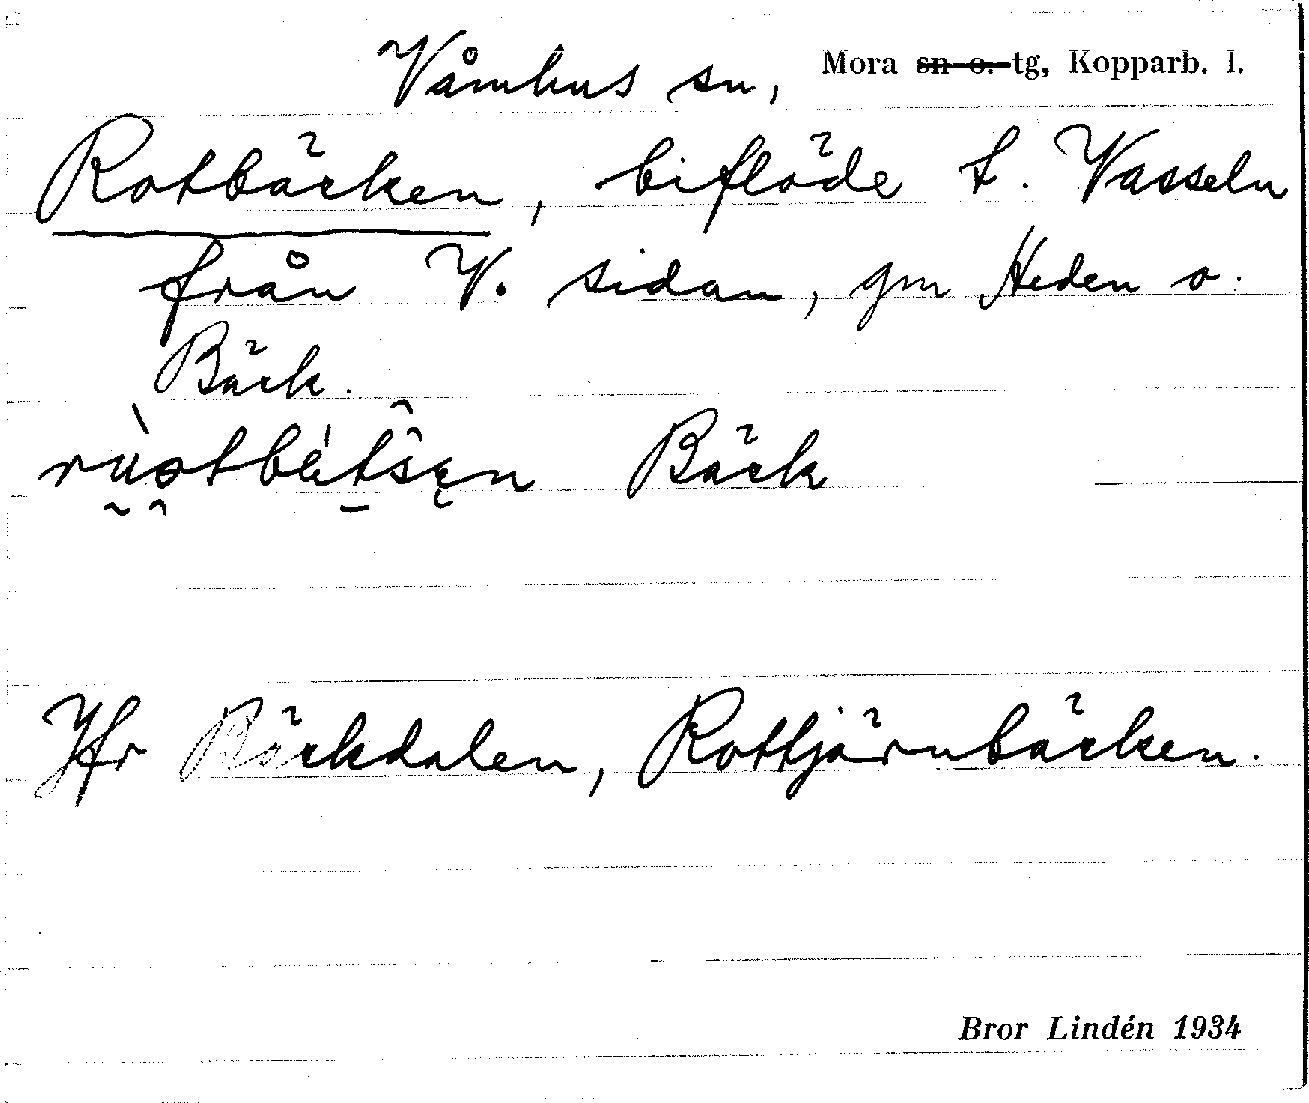 Våmhus sn, Mora sn o. tg, Kopparb. l.
Rotbäcken, biflöde t. Vasseln
från V. sidan, gm Heden o.
Bäck.
Bäck
Jfr Bäckdalen, Rottjärnbäcken.
Bror Lindén 1934